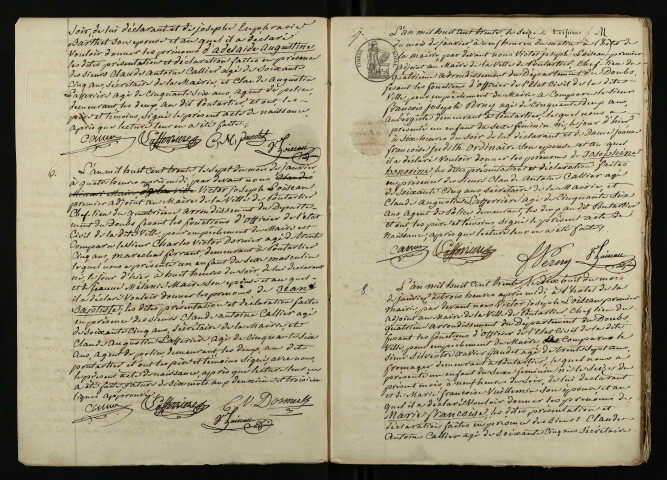 soir, de lui déclarant et de Josephe Euphrasie
Barthet son épouse et auquel il a déclaré
Vouloir donner les prénoms d'adelaïde Augustine
les dites présentation et déclaration faites en présence
des Sieurs Claude Antoine Callier agé de Soixante
Cinq ans, Secrétaire de la Mairie, et Claude Augustin
Lafferrière agé de Cinquante Six ans, agent de police,
demeurant les deux au dit Pontarlier et ont les
père et témoins, Signé le présent acte de naissance,
après que lecture leur en a été faite.
Callier Lafferriere
6.
L'an mil huit Cent trente le Sept du mois de janvier
à quatre heures après midi, par devant nous
Victor Joseph Loiseau
premier adjoint au Maire de la Ville de Pontarlier
Chef lieu du quatrième Arrondissement du Département
du Doubs, fesant les fonctions d'officier de l'état
Civil de la dite Ville, pour empêchement du Maire, est
Comparu le Sieur Charles Victor Dornier agé de trente
Cinq ans, marechal ferrant, demeurant à Pontarlier
lequel nous a présenté un enfant du Sexe masculin
né, le jour d'hier, à huit heures du Soir, de lui déclarant
et de Jeanne Mélanie Maire, Son épouse, et auquel
il a déclaré Vouloir donner les prénoms de Jean
Baptiste; les dites présentation et déclaration faites
en présence des Sieurs Claude Antoine Callier agé
de Soixante Cinq ans, Secrétaire de la Mairie, et
Claude Augustin Lafferrière agé de Cinquante Six
ans, agent de police, demeurant les deux au dit
Pontarlier et ont les père et témoins Signé avec nous,
le présent acte de naissance, après que lecture leur en
a été faite, rature de Six mots aux deuxième et troisième
lignes approuvée.
Callier Lafferriere
7.
L'an mil huit Cent trente, le
du mois de janvier à neuf heures du matin à l'hôtel de
la mairie, par devant nous Victor Joseph Loiseau premier
adjoint au Maire de la Ville de Pontarlier, Chef lieu du
quatrième Arrondissement du Département du Doubs,
fesant les fonctions d'officier de l'état Civil de la dite
Ville, pour empêchement du Maire, a Comparu le Sieur
François Joseph Perny agé de Cinquante deux ans,
Aubergiste demeurant à Pontarlier, lequel nous a
présenté un enfant du Sexe féminin né, le jour d'hier
à Six heures du Soir, de lui déclarant et de Dame Jeanne
Françoise Judith Ordinaire Son épouse et au quel
il a déclaré Vouloir donner les prénoms de Joséphine
honorine, les dites présentation et déclaration faites
en présence des Sieurs Claude Antoine Callier agé
de Soixante Cinq ans Secrétaire de la Mairie, et
Claude Augustin Lafferrière agé de Cinquante Six
ans, Agent de Police demeurant les deux au dit Pontarlier
et ont les père et témoins, Signé le présent acte de
Naissance, après que lecture leur en a été faite.
Callier Lafferriere
FPerny
8.
L'an mil huit Cent trente le dix huit du mois
de janvier à trois heures après midi, à l'hotel de la
mairie, par devant nous Victor Joseph Loiseau premier
Adjoint au Maire de la Ville de Pontarlier, Chef lieu du
quatrième Arrondissement du Département du Doubs,
fesant les fonctions d'officier de l'état Civil de la dite
Ville, pour empêchement du Maire a Comparu le
Sieur Silvestre Xavier agé de ans,
fromager demeurant à Pontarlier, lequel nous a
présenté un enfant du Sexe féminin né le Seize du
présent mois à neuf heures du Soir, de lui déclarant
et de Marie Françoise Vuillemin Son épouse et au
quel il a déclaré Vouloir donner les prénoms de
Marie Francoise, les dites présentation et
déclaration faites en présence des Sieurs Claude
Antoine Callier agé de Soixante Cinq ans Secrétaire